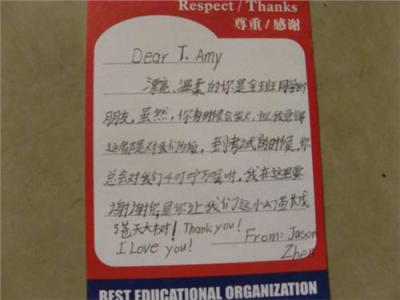 Respect / Thanks
尊重 / 感谢
Dear T. Amy
漂亮、温柔的你是全班同学的
朋友,虽然,你有时候会发火,但我觉得
这都是对我们的好,到考试的时候,你
总会对我们千叮咛万嘱咐,我在这里要
谢谢你是你让我们这小幼苗长成
苍天大树! Thank you!
I Love you!
From: Jason
Zhen
BEST EDUCATIONAL ORGANIZATION